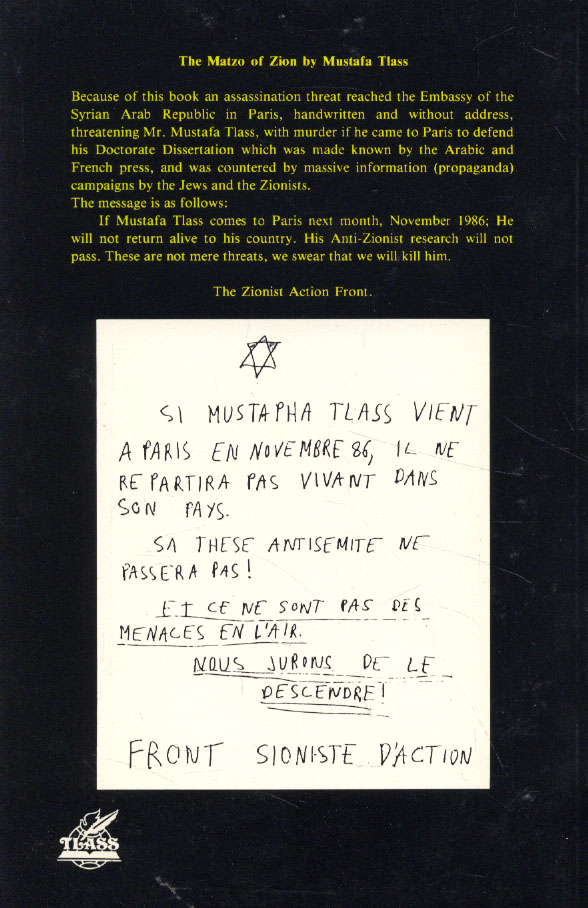 The Matzo of Zion by Mustafa Tlass
Because of this book an assassination threat reached the Embassy of the
Syrian Arab Republic in Paris, handwritten and without address,
threatening Mr. Mustafa Tlass, with murder if he came to Paris to defend
his Doctorate Dissertation which was made known by the Arabic and
French press, and was countered by massive information (propaganda)
campaigns by the Jews and the Zionists.
The message is as follows:
If Mustafa Tlass comes to Paris next month, November 1986; He
will not return alive to his country. His Anti-Zionist research will not
pass. These are not mere threats, we swear that we will kill him.
The Zionist Action Front.
SI MUSTAPHA TLASS VIENT
A PARIS EN NOVEMBRE 86, IL NE
REPARTIRA PAS VIVANT DANS
SON PAYS.
SA THESE ANTISEMITE NE
PASSERA PAS!
ET CE NE SONT PAS DES
MENACES EN L'AIR.
NOUS JURONS DE LE
DESCENDRE!
FRONT SIONISTE D'ACTION
TLASS